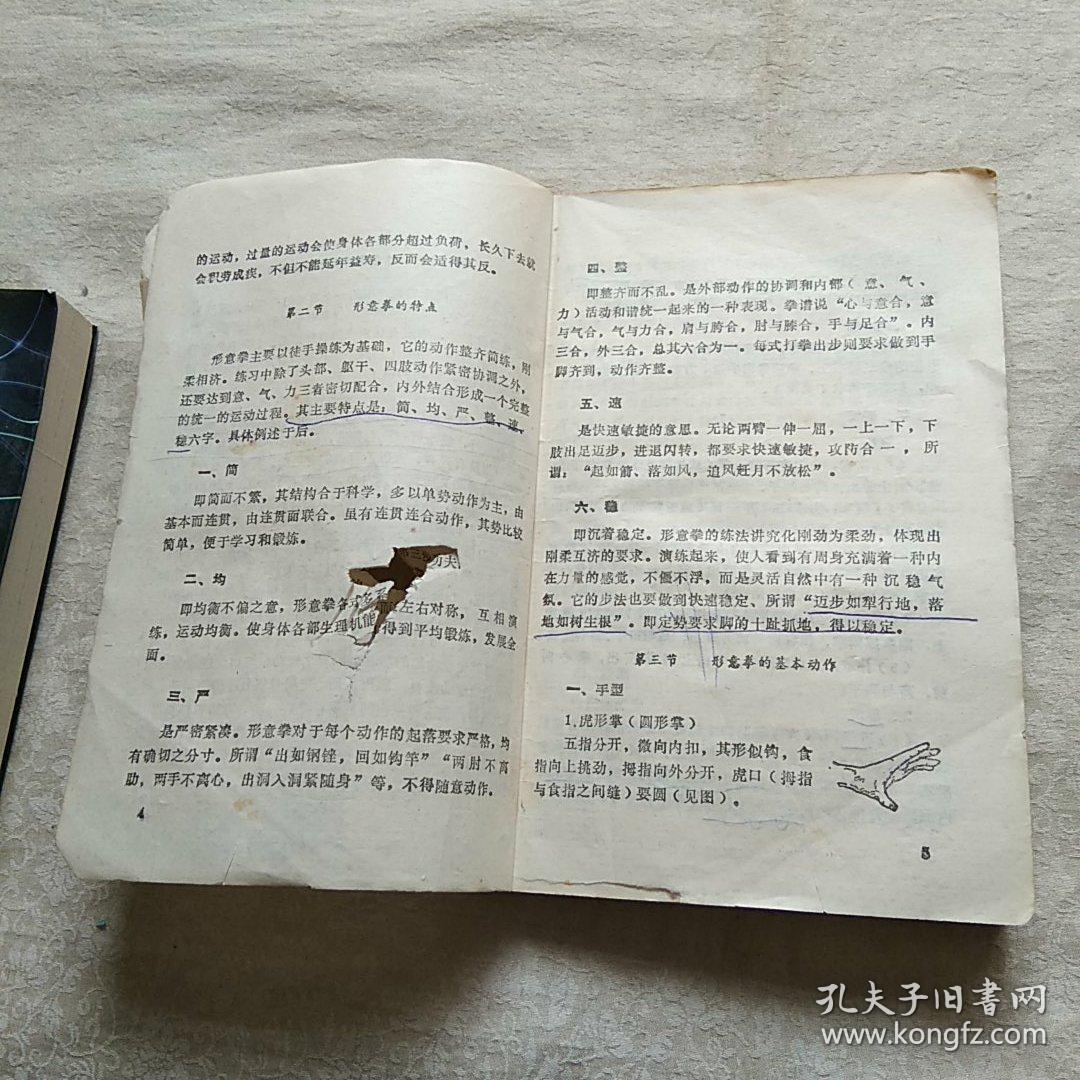 的运动，过量的运动会使身体各部分超过负荷，长久下去就
会积劳成疾，不但不能延年益寿，反而会适得其反。
第二节 形意拳的特点
形意拳主要以徒手操练为基础，它的动作整齐简练，刚
柔相济。练习中除了头部、躯干、四肢动作紧密协调之外，
还要达到意、气、力三者密切配合，内外结合形成一个完整
的统一的运动过程。其主要特点是：简、均、严、整、速、
稳六字。具体例述于后。
一、简
即简而不繁，其结构合于科学，多以单势动作为主，由
基本而连贯，由连贯而联合。虽有连贯连合动作，其势比较
简单，便于学习和锻炼。
功夫
二、均
即均衡不偏之意，形意拳各 左右对称，互相演
练，运动均衡。使身体各部生理机能 得到平均锻炼，发展全
面。
三、严
是严密紧凑。形意拳对于每个动作的起落要求严格，均
有确切之分寸。所谓“出如钢锉，回如钩竿”“两肘不离
肋，两手不离心，出洞入洞紧随身”等，不得随意动作。
4
四、整
即整齐而不乱。是外部动作的协调和内部（意、气、
力）活动和谐统一起来的一种表现。拳谱说“心与意合，意
与气合，气与力合，肩与胯合，肘与膝合，手与足合”。内
三合，外三合，总其六合为一。每式打拳出步则要求做到手
脚齐到，动作齐整。
五、速
是快速敏捷的意思。无论两臂一伸一屈，一上一下，下
肢出足迈步，进退闪转，都要求快速敏捷，攻防合一，所
谓：“起如箭、落如风，追风赶月不放松”。
六、稳
即沉着稳定。形意拳的练法讲究化刚劲为柔劲，体现出
刚柔互济的要求。演练起来，使人看到有周身充满着一种内
在力量的感觉，不僵不浮，而是灵活自然中有一种沉稳气
氛。它的步法也要做到快速稳定、所谓“迈步如犁行地，落
地如树生根”。即定势要求脚的十趾抓地，得以稳定。
第三节 形意拳的基本动作
一、手型
1.虎形掌（圆形掌）
五指分开，微向内扣，其形似钩，食
指向上挑劲，拇指向外分开，虎口（拇指
与食指之间缝）要圆（见图）。
5
孔夫子旧書网
www.kongfz.com